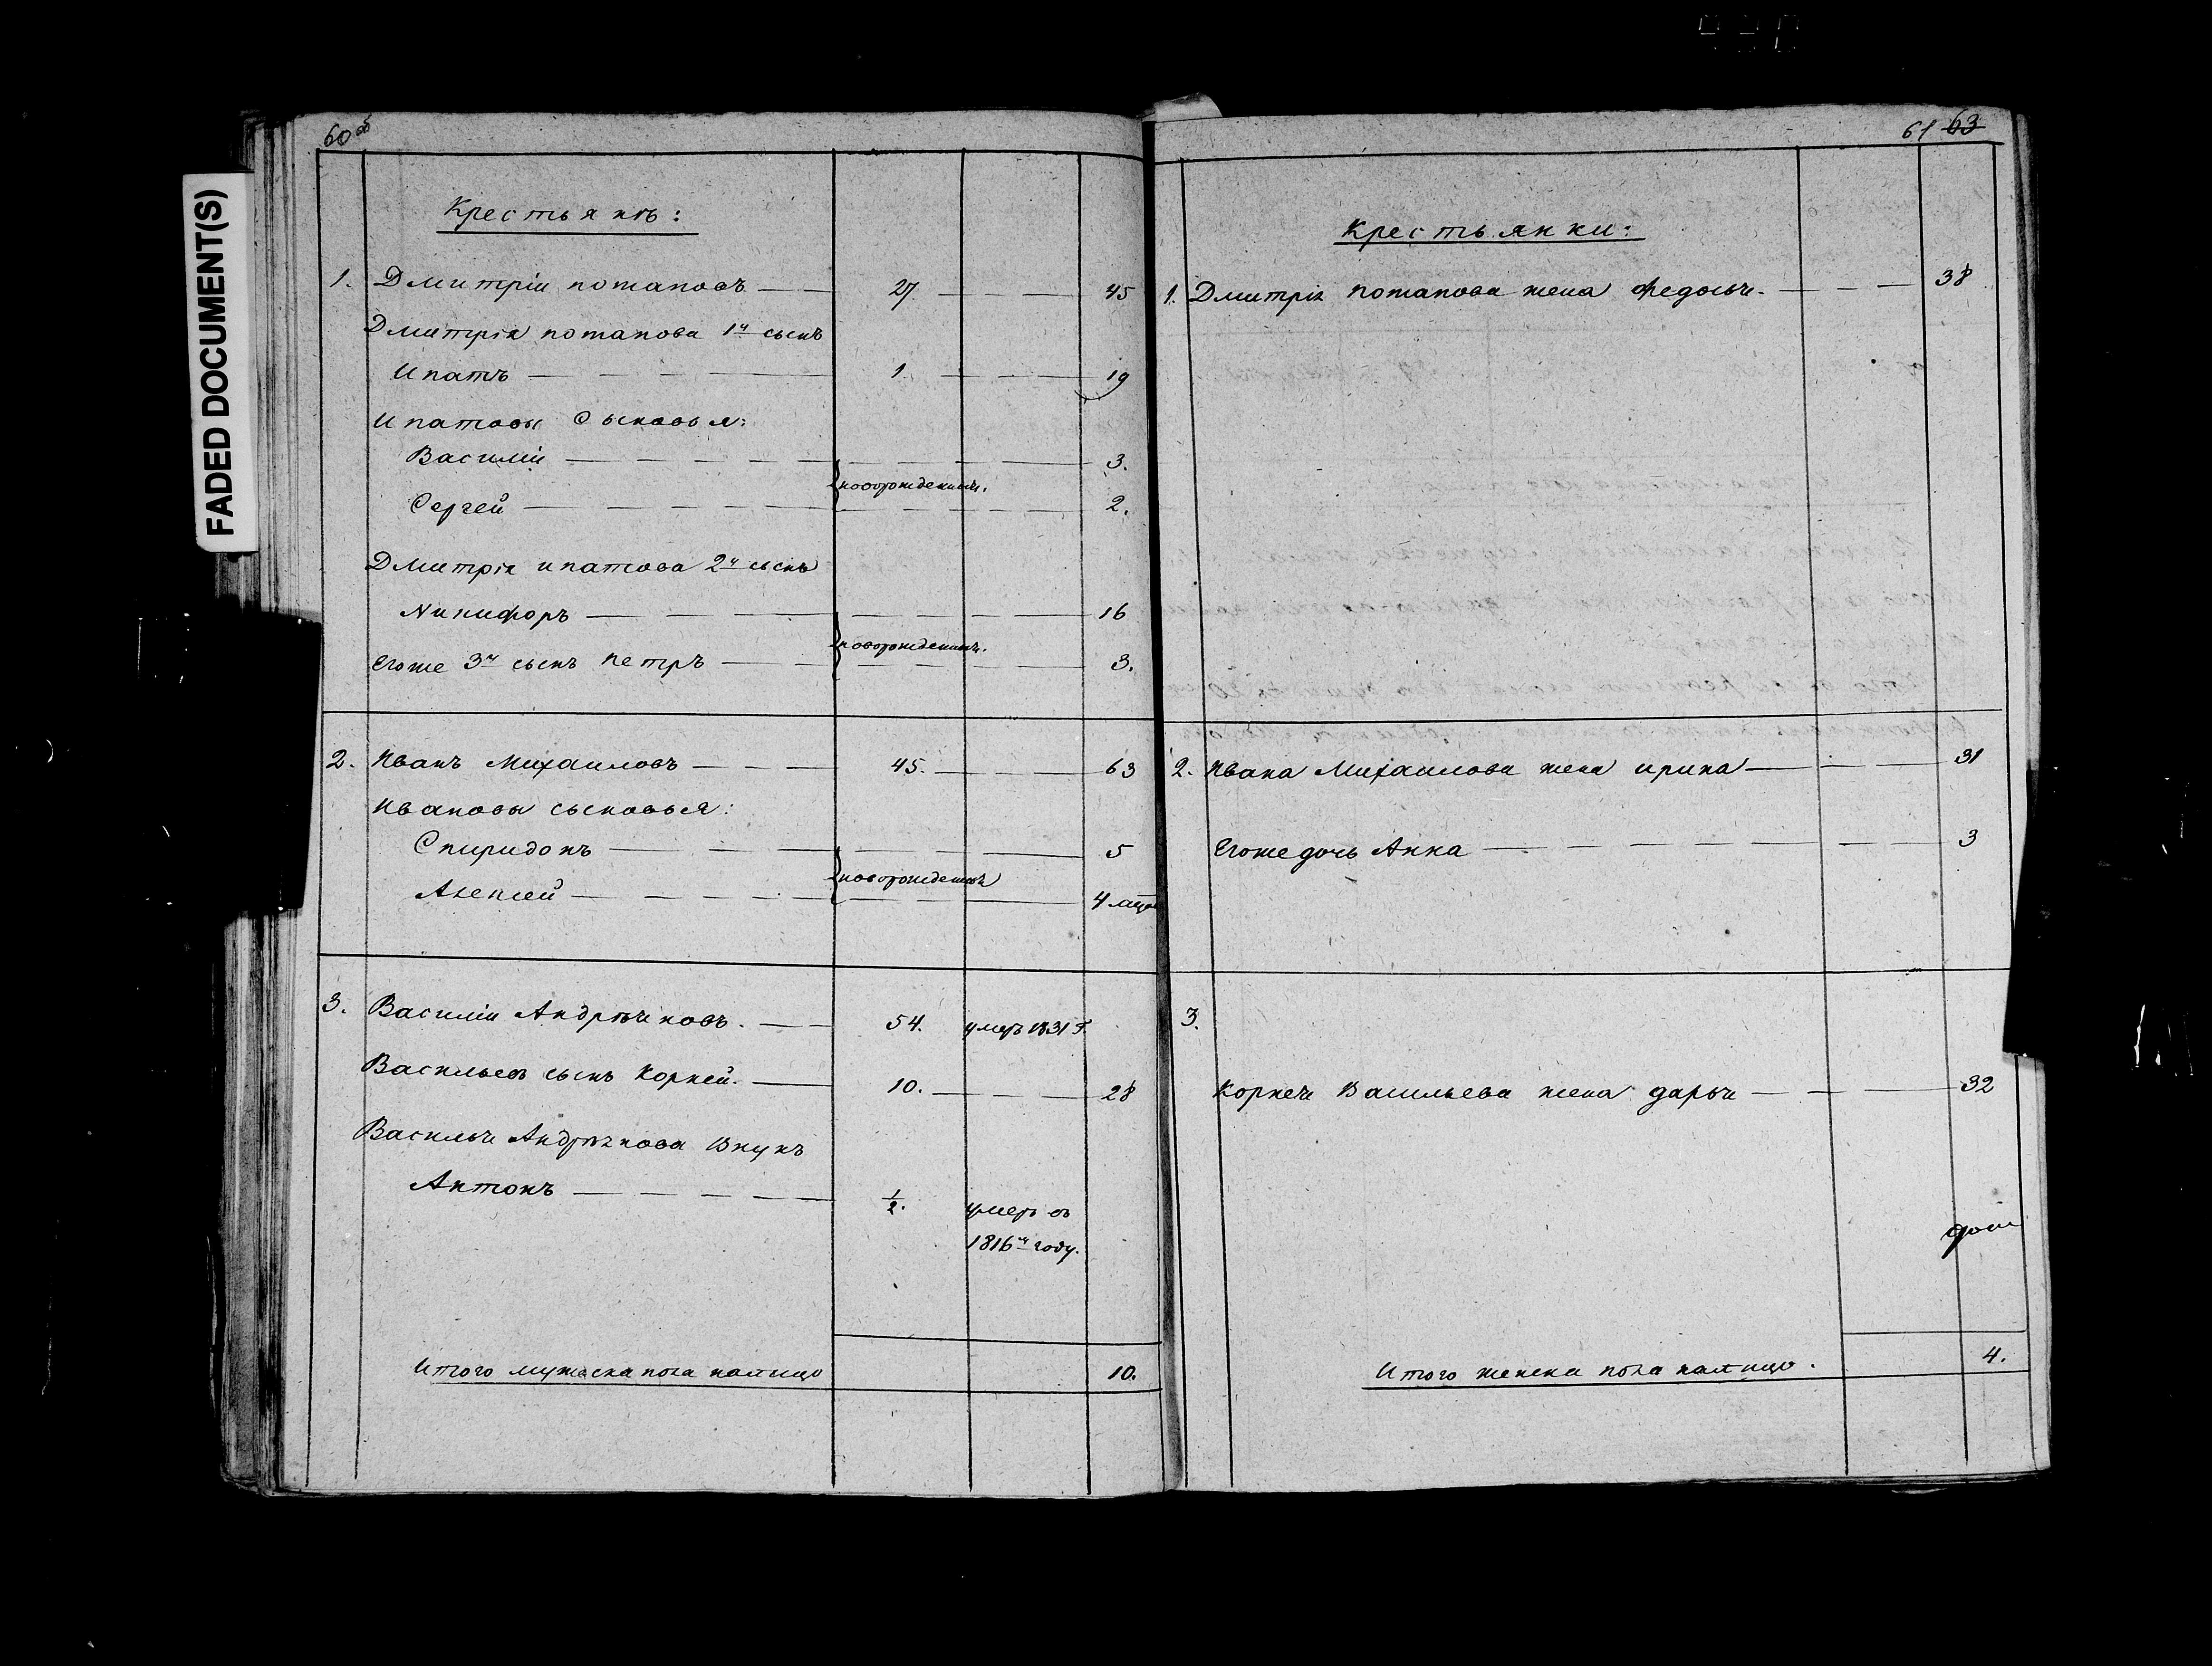 FADED DOCUMENT(S)
60 об
Крестьянъ:
1. Дмитрій потаповъ 27 45
Дмитрія потапова 1й сынъ
Ипатъ 1 19
Ипатовы Сыновья:
Василій 3.
новорожденныи.
Сергей 2.
Дмитрія ипатова 2й сынъ
Никифоръ 16
новорожденныи.
Егоже 3й сынъ петръ 3.
2. Иванъ Михаиловъ 45. 63
Ивановы сыновья:
Спиридонъ 5
новорожденныи
Алексей 4
3. Василіи Андрѣяновъ. 54. умеръ 1831 г.
Васильевъ сынъ Корней. 10. 28
Василья Андрѣянова Внукъ
Антонъ 1/2. умеръ въ
1816м году.
Итого мужеска пола налицо 10.
61 63
Крестьянки:
1. Дмитрія потапова жена Федосья. 38
2. Ивана Михаилова жена ирина 31
Егоже дочь Анна 3
3.
Корнея Васильева жена дарья 32
Итого женска пола налицо. 4.